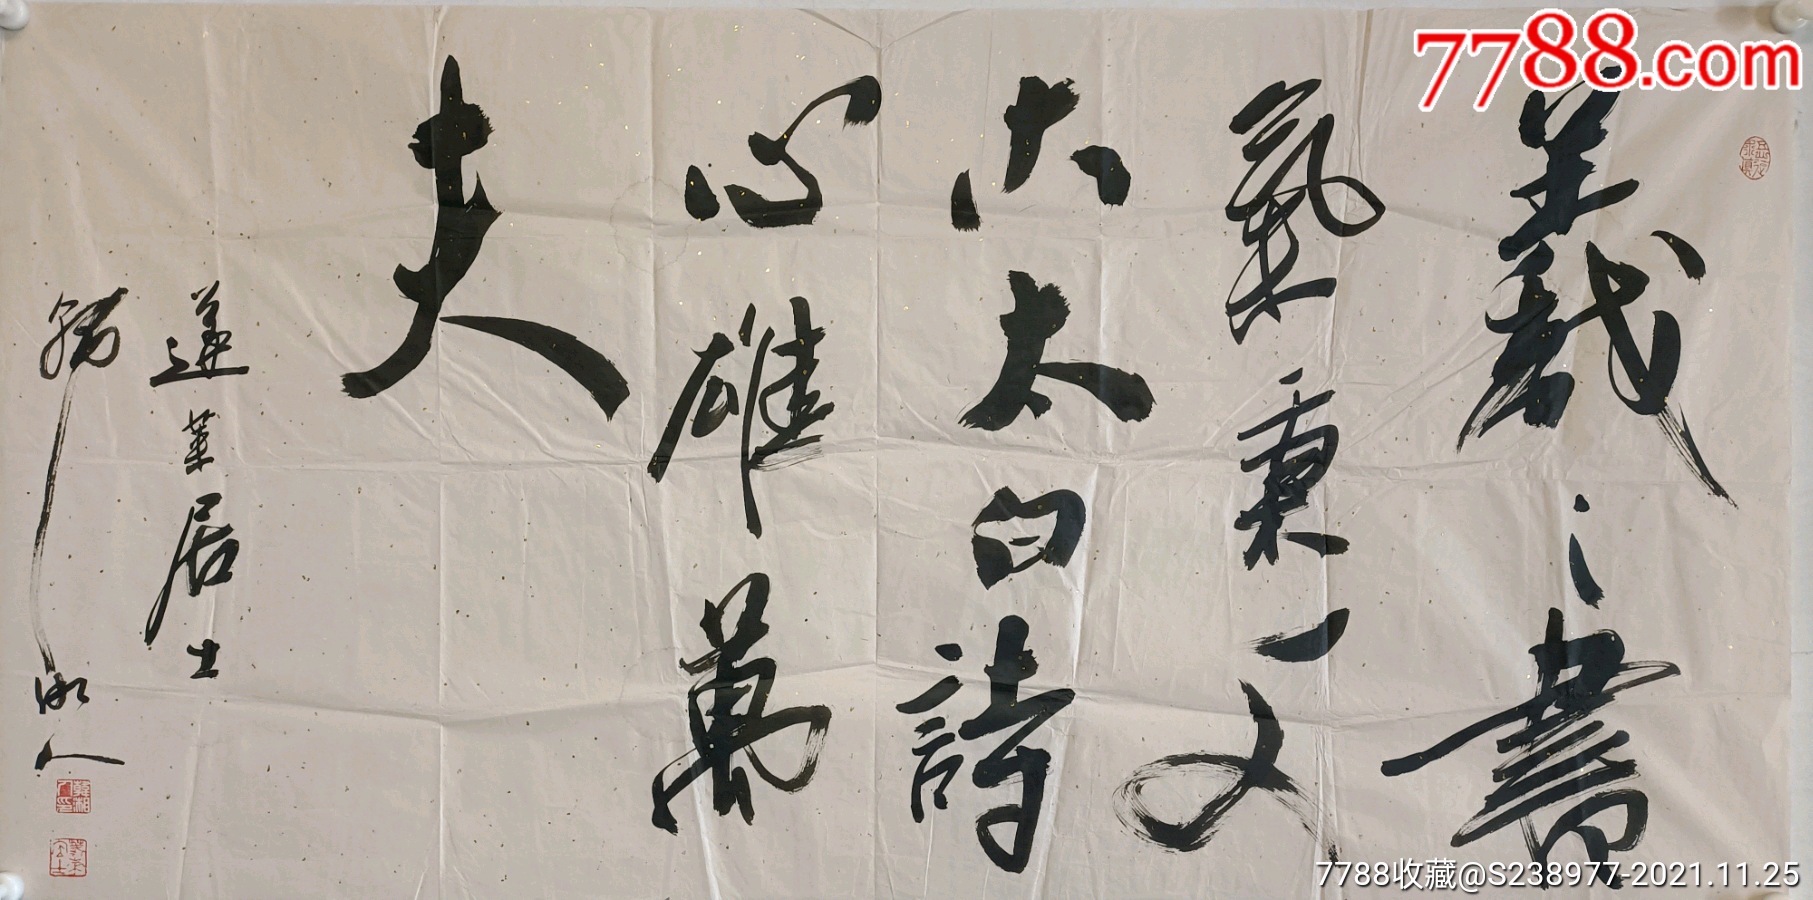 7788.com
羲之書
氣秉文
太白詩
心雄萬
夫
居士
人
7788收藏@S238977-2021.11.25